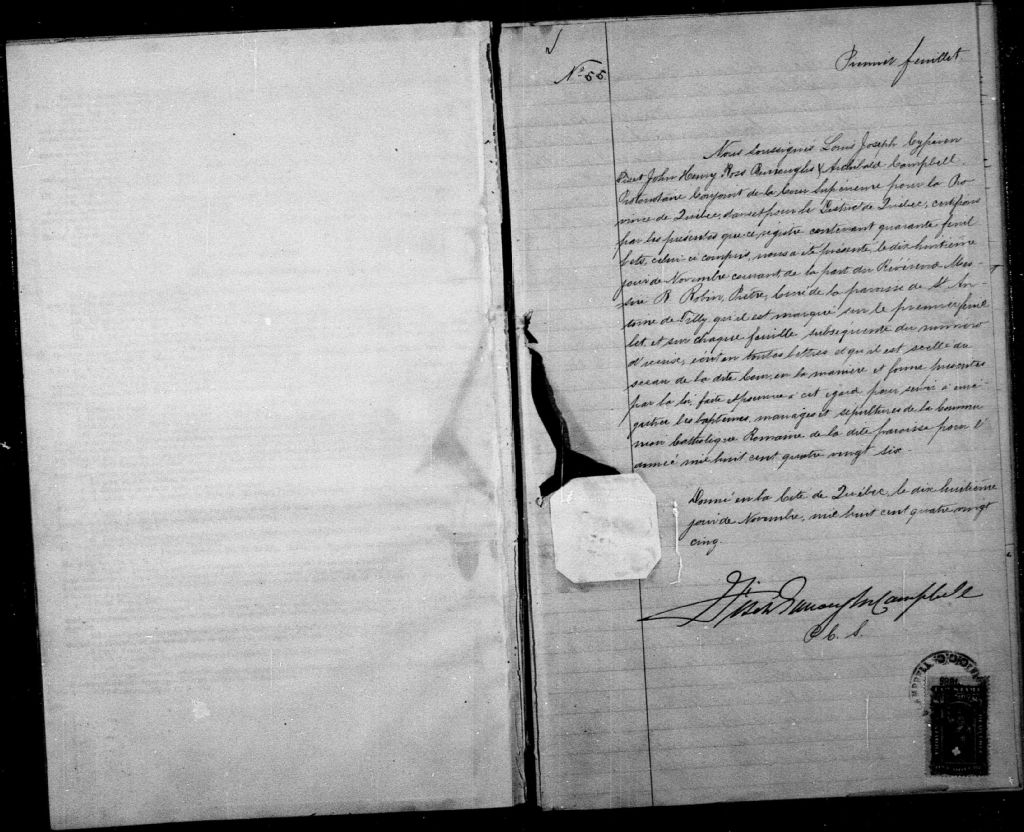 Nº 55
Premier feuillet
Nous soussignés Louis Joseph Cyprien
Fiset John Henry Ross Burroughs & Archibald Campbell
Protonotaire Conjoint de la Cour Supérieure pour la Pro
vince de Québec, dans et pour le District de Québec, certifions
par les présentes que ce registre contenant quarante feuil
lets, celui-ci compris, nous a été présenté, le dix huitième
jour de Novembre courant de la part du Révérend Mes-
sire R. Robin, Prêtre, Curé de la paroisse de St An-
toine de Tilly, qu'il est marqué sur le premier feuil
let, et sur chaque feuille subséquente du numéro
d'icelui, écrit en toutes lettres et qu'il est scellé du
sceau de la dite Cour, en la manière et forme prescrites
par la loi, faite et pourvue à cet égard pour servir à enré
gistrer les baptêmes, mariages et sépultures de la Commu
nion Catholique Romaine de la dite paroisse pour l'
année mil huit cent quatre vingt six.
Donné en la Cité de Québec, le dix huitième
jour de Novembre, mil huit cent quatre vingt
cinq.
Fiset Burroughs Campbell
P. C. S.